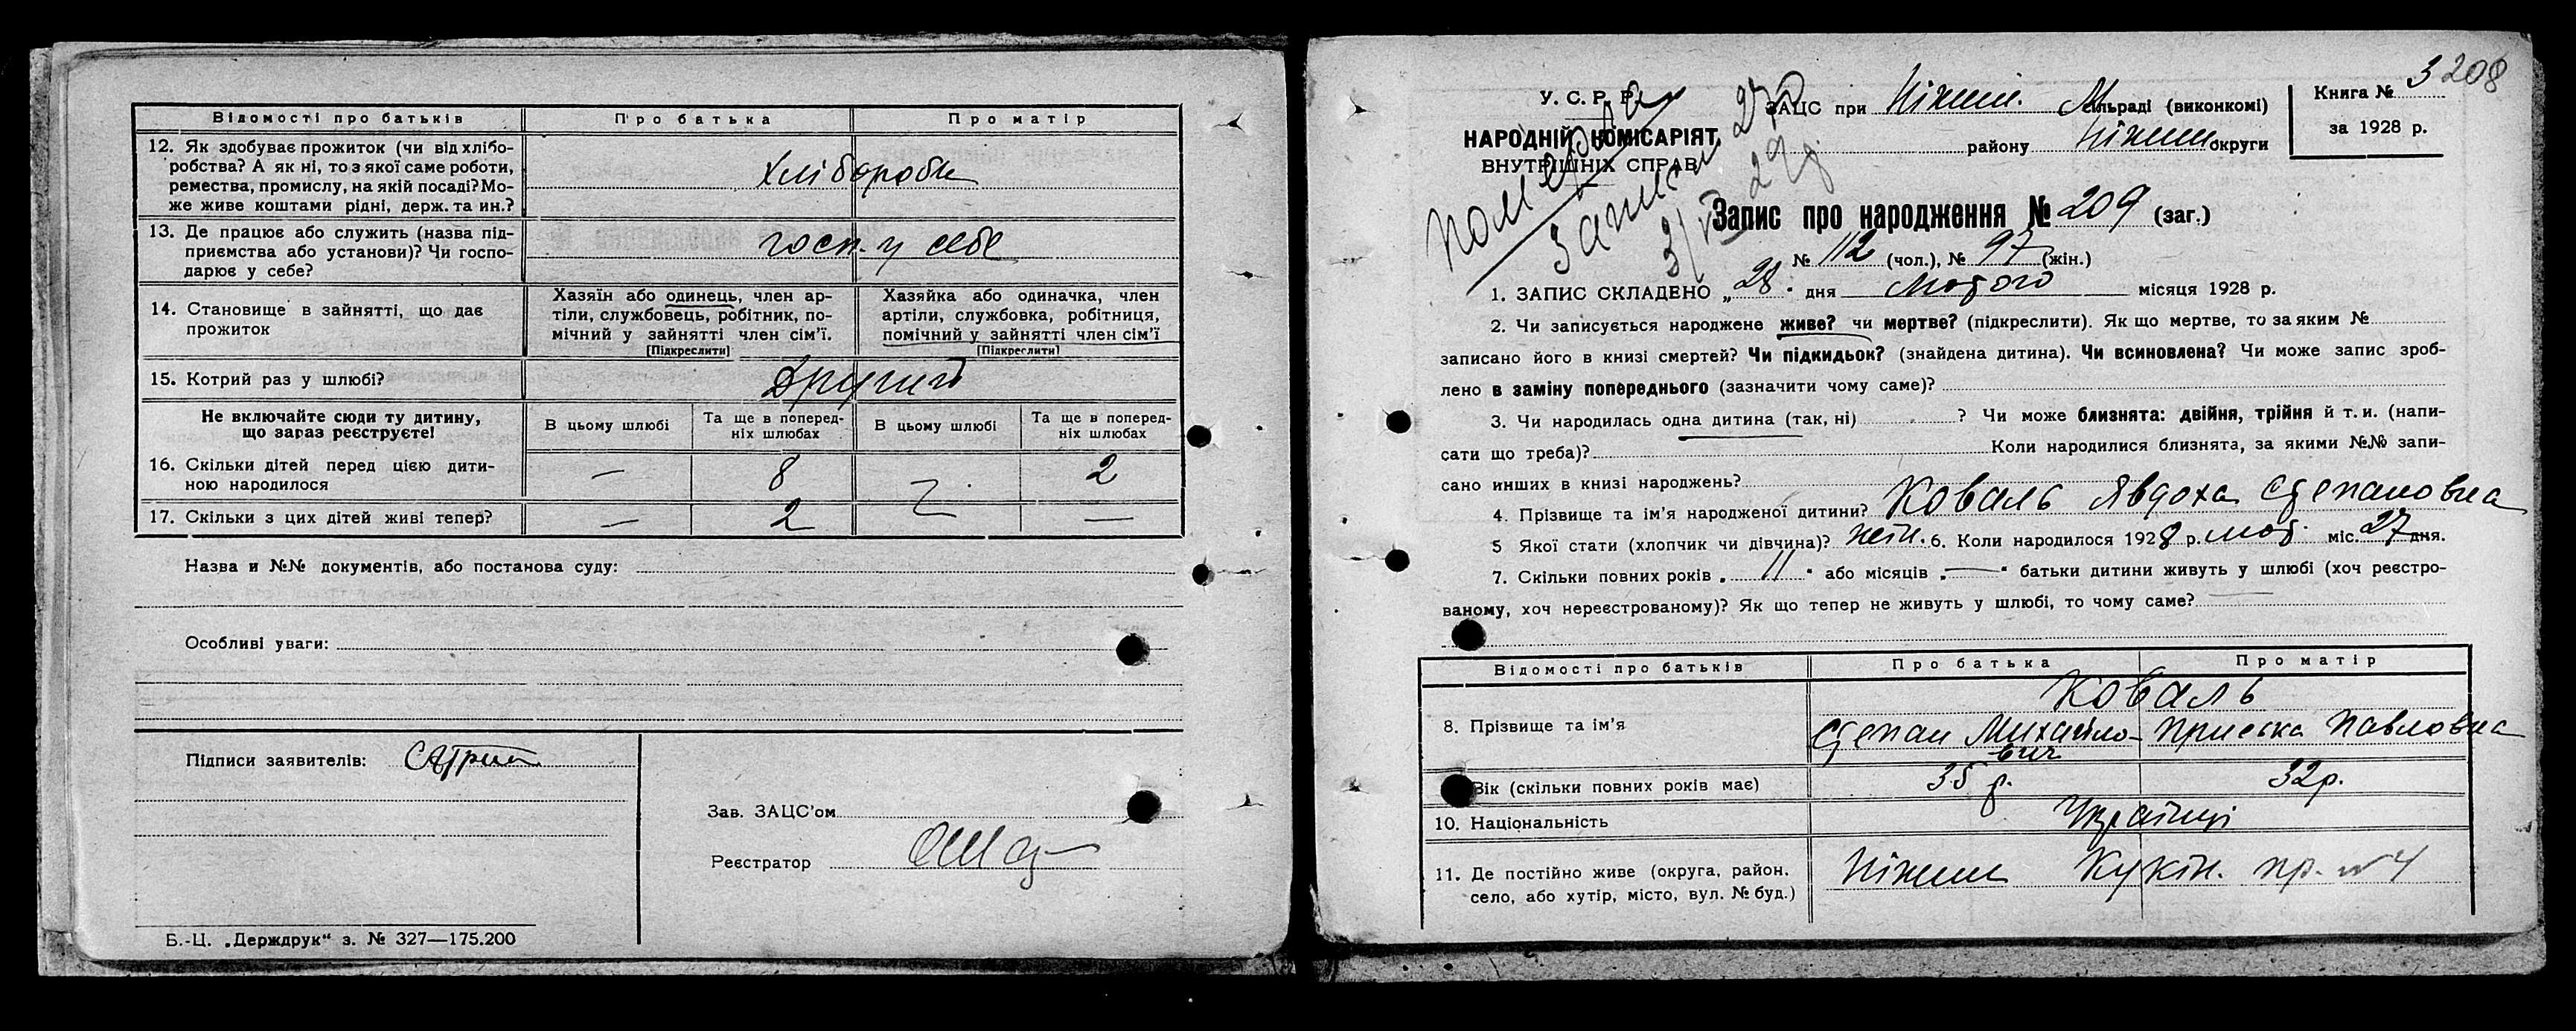 Відомості про батьків Про батька Про матір
12. Як здобуває прожиток (чи від хлібо-
робства? А як ні, то з якої саме роботи,
ремества, промислу, на якій посаді? Мо-
же живе коштами рідні, держ. та ин.?
Хлібороби
13. Де працює або служить (назва під-
приємства або установи)? Чи госпо-
дарює у себе?
госп. у себе
14. Становище в зайнятті, що дає
прожиток
Хазяїн або одинець, член ар-
тіли, службовець, робітник, по-
мічний у зайнятті член сім'ї.
[Підкреслити]
Хазяйка або одиначка, член
артіли, службовка, робітниця,
помічний у зайнятті член сім'ї
[Підкреслити]
15. Котрий раз у шлюбі?
Другий
Не включайте сюди ту дитину,
що зараз реєструєте!
В цьому шлюбі
Та ще в поперед-
ніх шлюбах
В цьому шлюбі
Та ще в поперед-
ніх шлюбах
16. Скільки дітей перед цією дити-
ною народилося
— 8 2
17. Скільки з цих дітей живі тепер?
— 2 —
Назва и №№ документів, або постанова суду:
Особливі уваги:
Підписи заявителів:
Зав. ЗАЦС'ом
Реєстратор
Б.-Ц. „Держдрук“ з. № 327—175.200
208
У. С. Р. Р.
НАРОДНІЙ КОМІСАРІЯТ
ВНУТРІШНІХ СПРАВ
померла
ЗАЦС при Ніжин. М сільраді (виконкомі)
району Ніжин округи
Книга № 3
за 1928 р.
Запис про народження № 209 (заг.)
№ 112 (чол.), № 97 (жін.)
1. ЗАПИС СКЛАДЕНО „28“ дня Лютого місяця 1928 р.
2. Чи записується народжене живе? чи мертве? (підкреслити). Як що мертве, то за яким №
записано його в книзі смертей? Чи підкидьок? (знайдена дитина). Чи всиновлена? Чи може запис зроб-
лено в заміну попереднього (зазначити чому саме)?
3. Чи народилась одна дитина (так, ні) ? Чи може близнята: двійня, трійня й т. и. (напи-
сати що треба)? Коли народилися близнята, за якими №№ запи-
сано инших в книзі народжень?
4. Прізвище та ім'я народженої дитини? Коваль Явдоха Степановна
5 Якої стати (хлопчик чи дівчина)? жін. 6. Коли народилося 1928 р. лют. міс. 27 дня.
7. Скільки повних років „ 11 “ або місяців „ — “ батьки дитини живуть у шлюбі (хоч реєстро-
ваному, хоч нереєстрованому)? Як що тепер не живуть у шлюбі, то чому саме?
Відомості про батьків Про батька Про матір
Коваль
8. Прізвище та ім'я
Степан Михайло-
вич
Приська Павловна
Вік (скільки повних років має) 35 р. 32 р.
10. Національність Українці
11. Де постійно живе (округа, район.
село, або хутір, місто, вул. № буд.)
Ніжин Кукін. пр. № 4